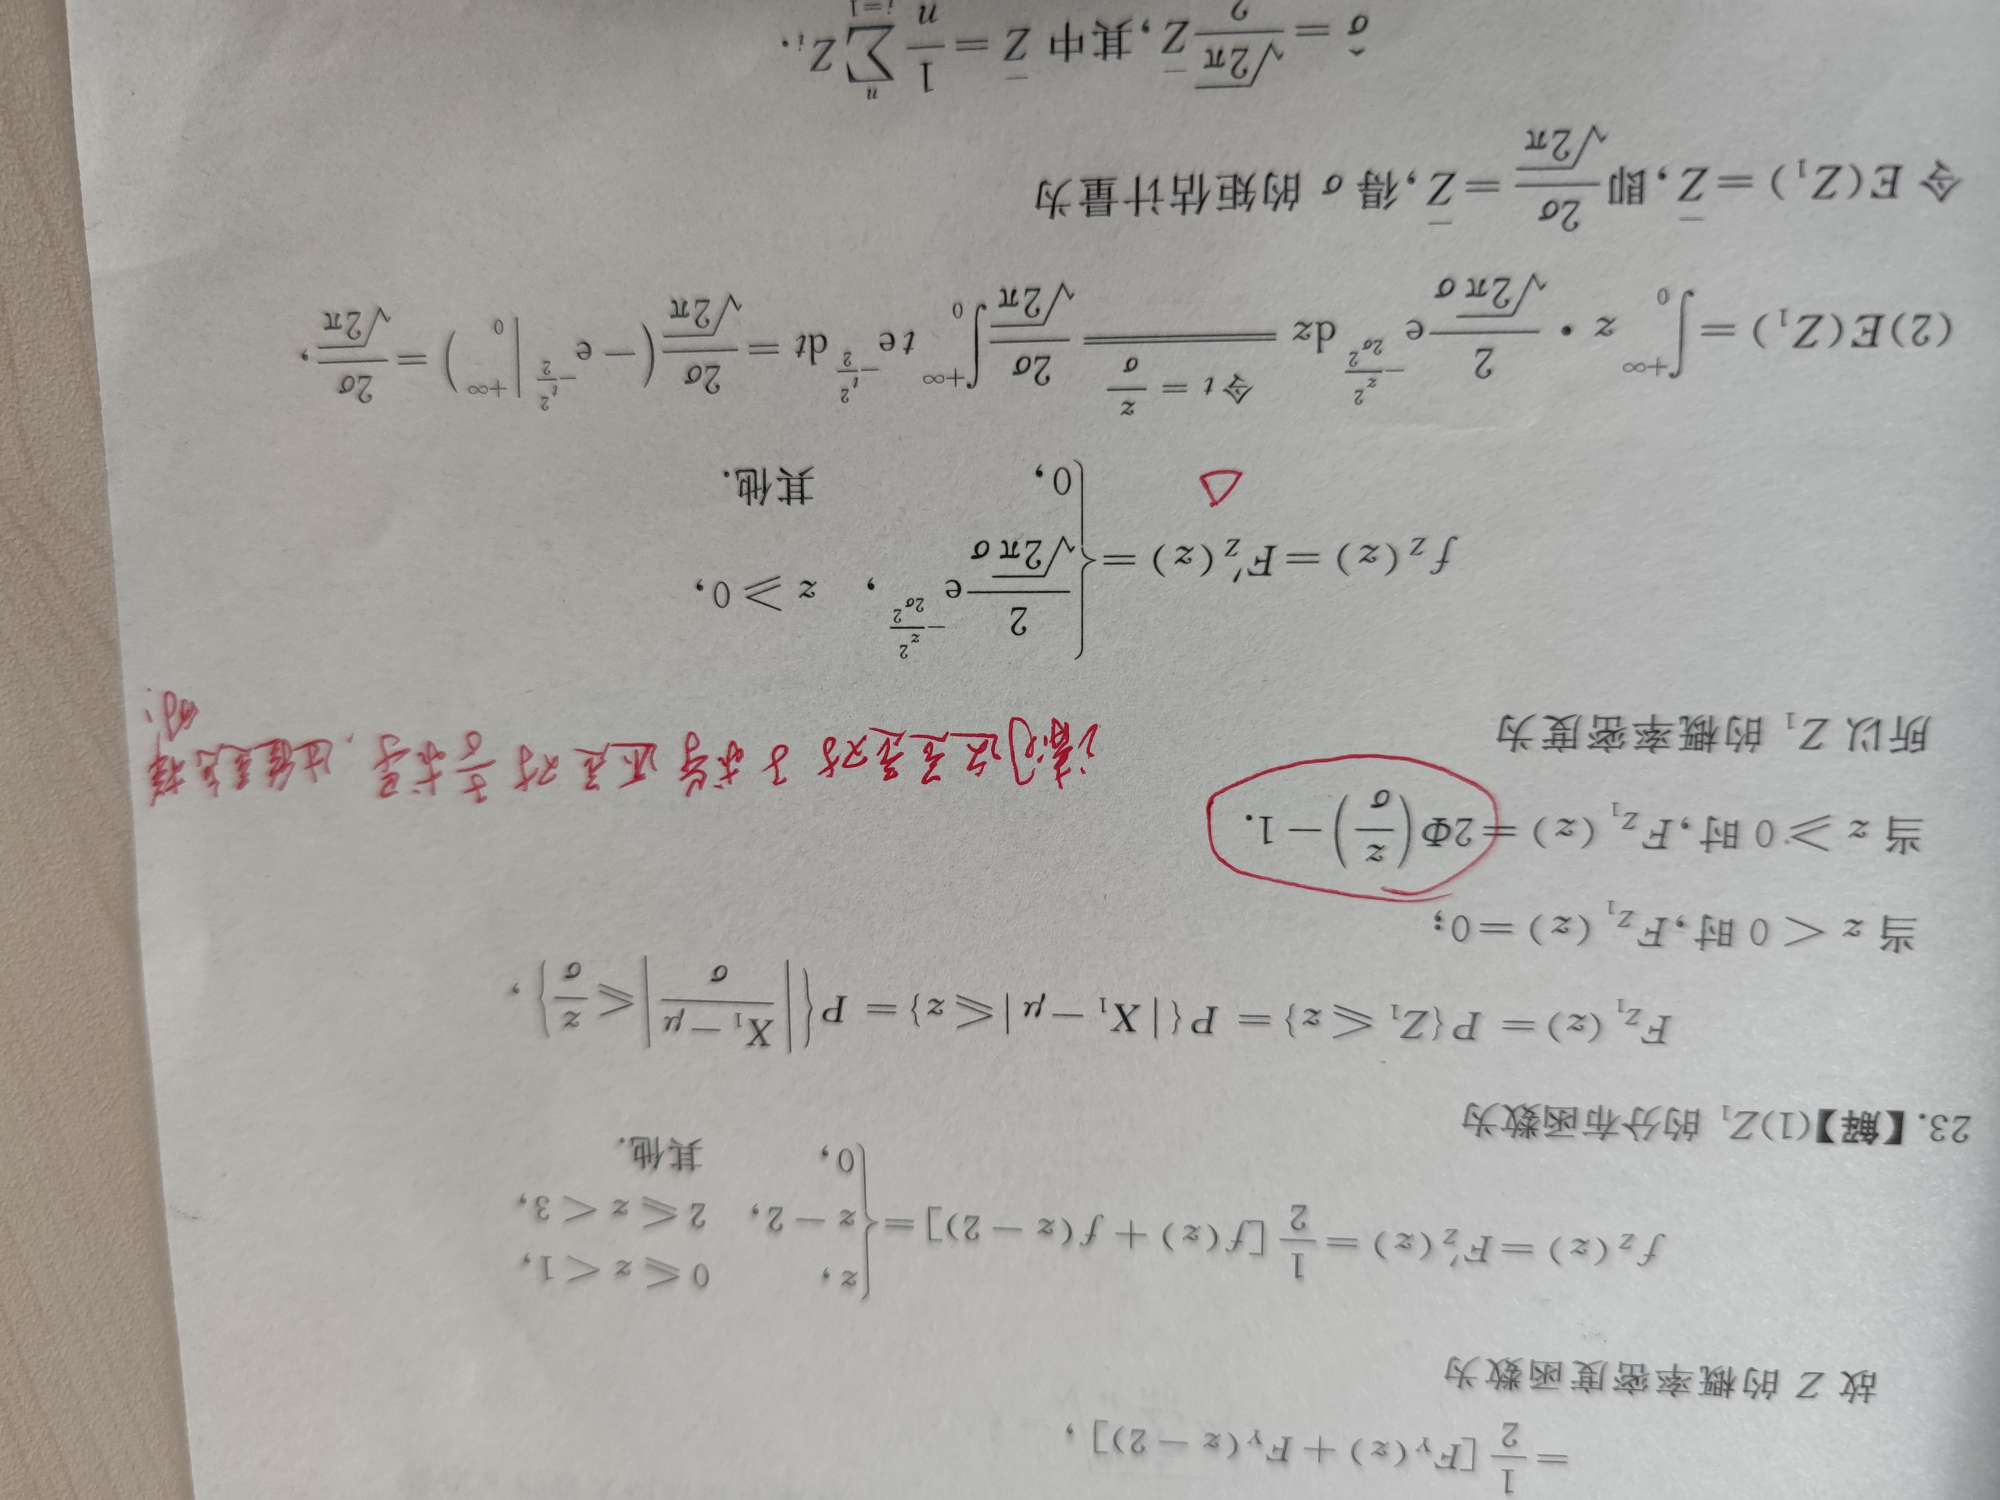 = 1/2 [F_Y(z) + F_Y(z - 2)],
故 Z 的概率密度函数为
f_Z(z) = F'_Z(z) = 1/2 [f(z) + f(z - 2)] = { z, 0 ≤ z < 1,
z - 2, 2 ≤ z < 3,
0, 其他.
23.【解】(1)Z₁ 的分布函数为
F_{Z₁}(z) = P{Z₁ ≤ z} = P{|X₁ - μ| ≤ z} = P{|(X₁ - μ)/σ| ≤ z/σ},
当 z < 0 时,F_{Z₁}(z) = 0;
当 z ≥ 0 时,F_{Z₁}(z) = 2Φ(z/σ) - 1.
请问这是对 z 求导还是对 z/σ 求导,
所以 Z₁ 的概率密度为
f_Z(z) = F'_Z(z) = { 2/(√(2π)σ) e^{-z²/(2σ²)}, z ≥ 0,
0, 其他.
(2)E(Z₁) = ∫₀^{+∞} z · 2/(√(2π)σ) e^{-z²/(2σ²)} dz ==(令 t = z/σ)== 2σ/√(2π) ∫₀^{+∞} t e^{-t²/2} dt = 2σ/√(2π) (-e^{-t²/2} |₀^{+∞}) = 2σ/√(2π),
令 E(Z₁) = Z̄,即 2σ/√(2π) = Z̄,得 σ 的矩估计量为
σ̂ = √(2π)/2 Z̄,其中 Z̄ = 1/n ∑_{i=1}^{n} Z_i.